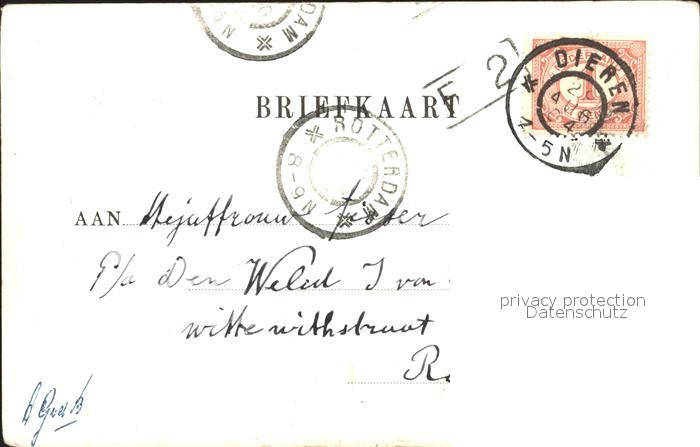 DAM
N6
BRIEFKAART
F 2
DIEREN
2
AUG
04
5N
ROTTERDAM
N6-8
AAN Mejuffrouw
P/a Den Weled I van
witte withstraat
privacy protection
Datenschutz